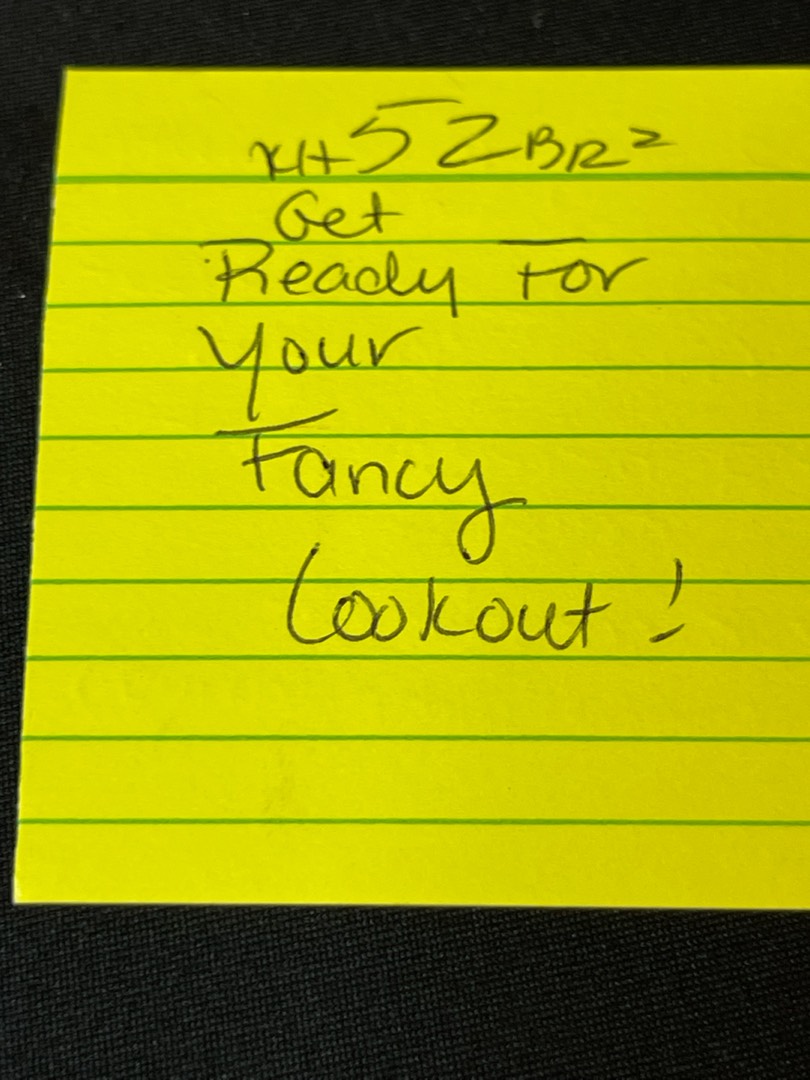 XH+52BR²
Get
Ready For
your
Fancy
Lookout!